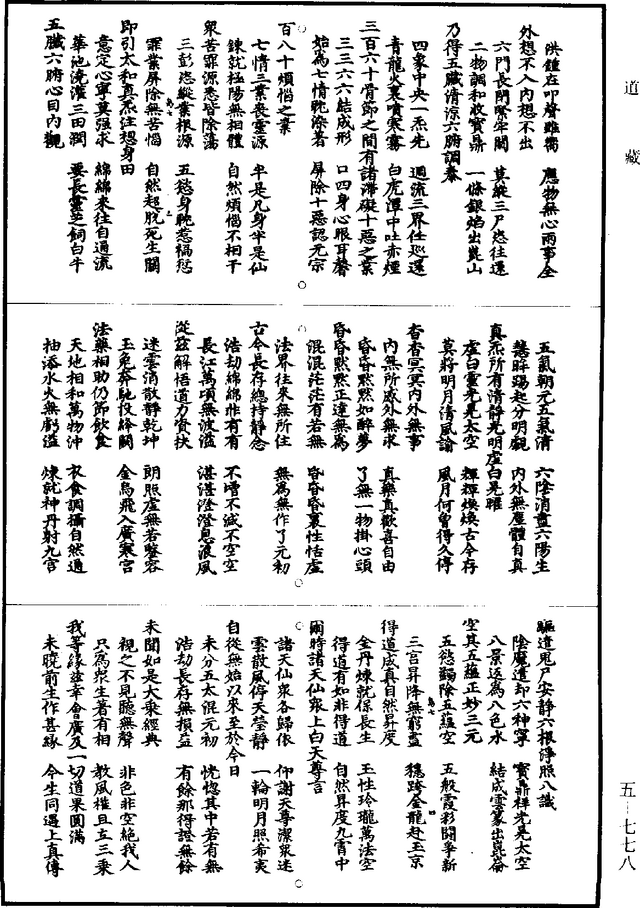 道藏
洪鐘在叩聲雖獨　應物無心兩事全
外想不入內想不出
六門長閉緊牢關　莫縱三尸恣往還
二物調和收寶鼎　一條銀焰出崑山
乃得五臟清涼六腑調泰
四象中央一炁先　週流三界任巡還
青龍火裏噴寒霧　白虎潭中吐赤煙
三百六十骨節之間有諸滯礙十惡之業
三三六六結成形　口四身心眼耳聲
始為七情䏙染著　屏除十惡認元宗
百八十煩惱之業
七情三業喪靈源　半是凡身半是仙
鍊就極陽無相體　自然煩惱不相干
眾苦罪源悉皆除蕩
三彭恣縱業根源　五慾身䏙惹禍愆
罪業屏除無苦惱　自然超脫死生關
即引太和真炁注想身田
意定心寧莫強求　綿綿來往自通流
華池澆灌三田潤　要長靈芝飼白牛
五臟六腑心目內觀
五氣朝元五氣清　六陰消盡六陽生
慧眸踢起分明覷　內外無塵體自真
真炁所有清靜光明虛白晃曜
虛白靈光晃太空　輝輝煥煥古今存
莫將明月清風論　風月何曾得久停
杳杳冥冥內外無事
內無所感外無求　真樂真歡喜自由
昏昏默默如醉夢　了無一物掛心頭
昏昏默默正達無為
混混茫茫有若無　昏昏昏裏性恬虛
法界往來無所住　無為無作了元初
古今長存總持靜念
浩劫綿綿非有有　不增不減不空空
長江萬頃無波溢　湛湛澄澄息浪風
從茲解悟道力資扶
迷雲消散靜乾坤　朗照虛無若鑒容
玉兔奔馳投絳闕　金烏飛入廣寒宮
法藥相助仍節飲食
天地相和萬物沖　衣食調攝自然通
抽添水火無虧溢　煉就神丹射九宮
驅遣鬼尸安靜六根淨照八識
陰魔遣却六神寧　寶鼎祥光晃太空
八景返為八色水　結成雲蓋出崑崙
空其五蘊正妙三元
五慾蠲除五蘊空　五般霞彩鬬爭新
三宮昇降無窮盡　穩跨金龍赴玉京
得道成真自然昇度
金丹煉就係長生　王性玲瓏萬法空
得道有如非得道　自然昇度九霄中
爾時諸天仙眾上白天尊言
諸天仙眾各歸依　仰謝天尊潔眾迷
雲散風停天瑩靜　一輪明月照希夷
自從無始以來至於今日
未分五太混元初　恍惚其中若有無
浩劫長存無損益　有餘那得證無餘
未聞如是大乘經典
視之不見聽無聲　非色非空絕我人
只為眾生著有相　教風權且立三乘
我等緣茲幸會廣及一切道果圓滿
未曉前生作甚緣　今生同遇上真傳
五—七七八